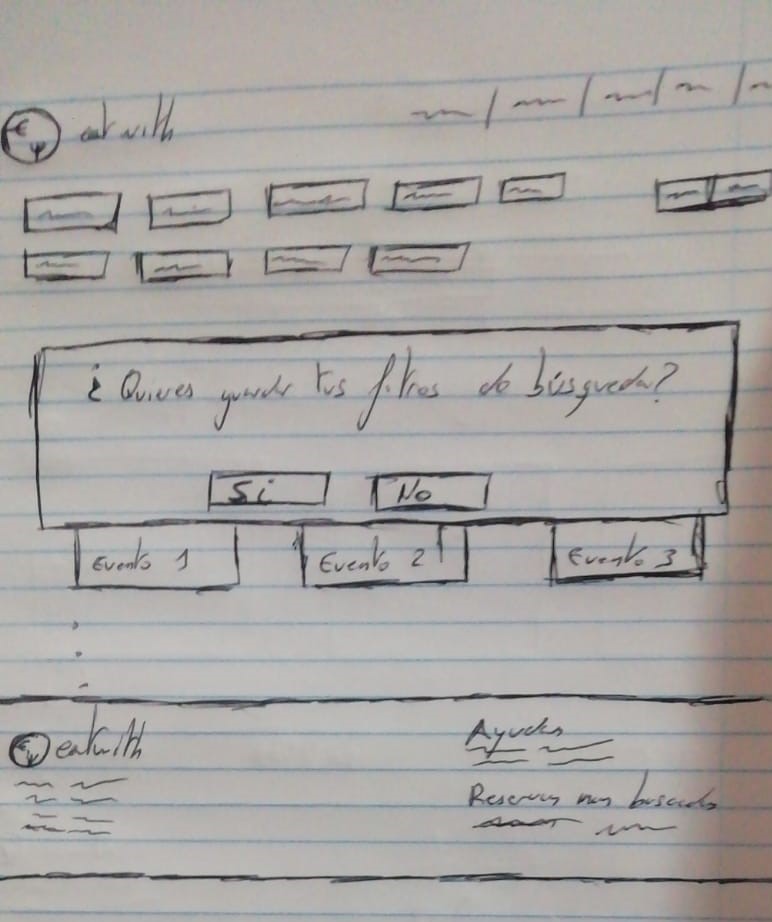 eatwith
¿Quieres guardar tus filtros de búsqueda?
Si No
Evento 1 Evento 2 Evento 3
eatwith
Ayudas
Reservas mas buscado